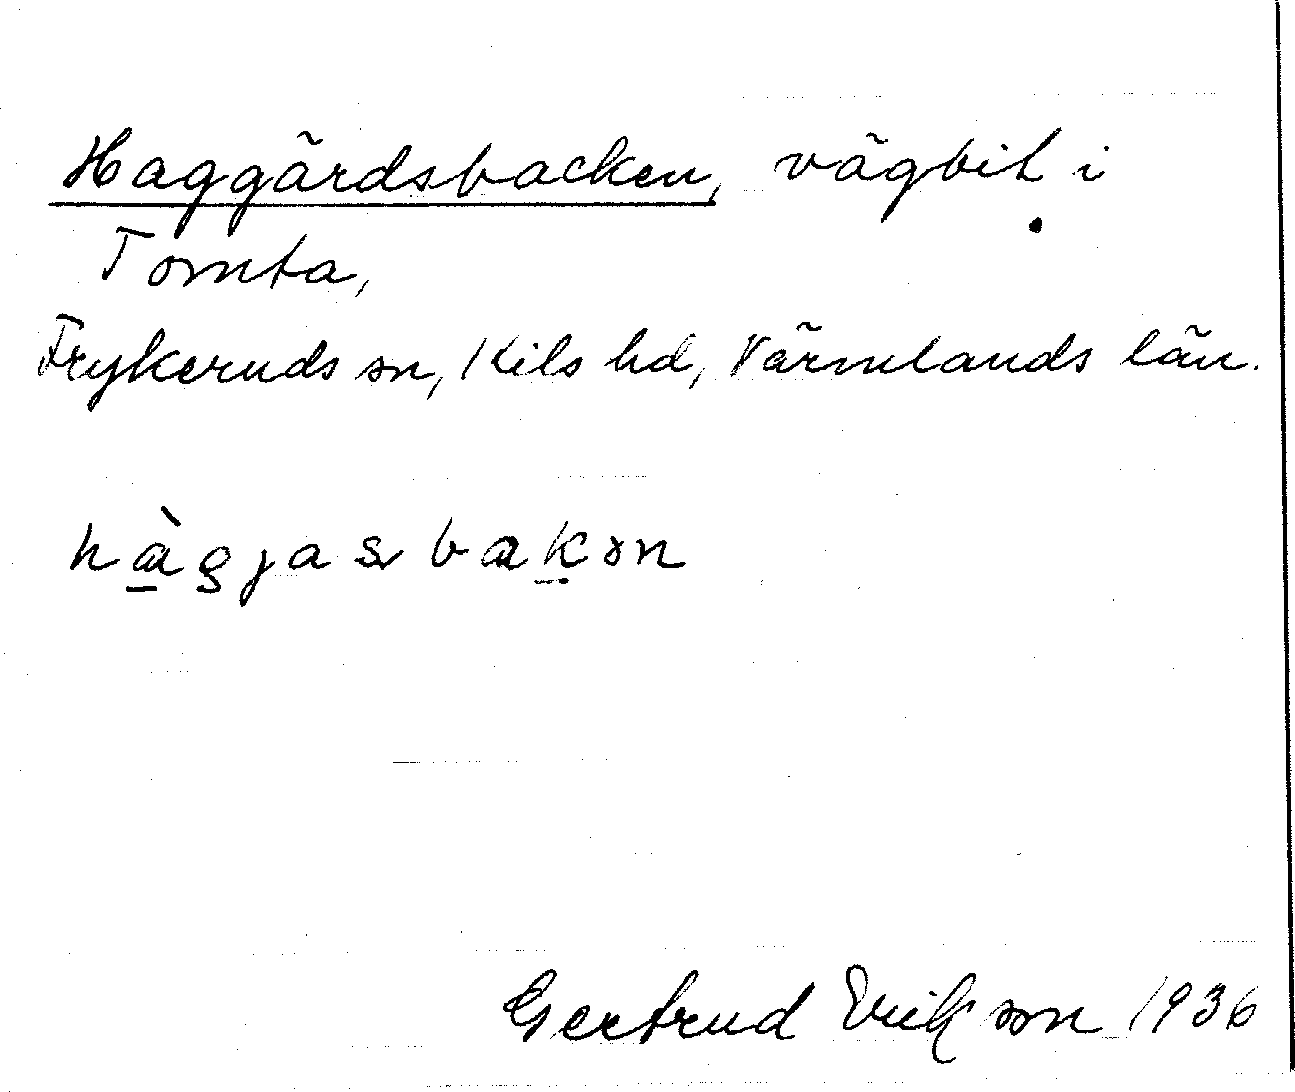 Haggärdsbacken, vägbit i
Tomta,
Frykeruds sn, Kils hd, Värmlands län.
hàgjasbakən
Gertrud Erikson 1936